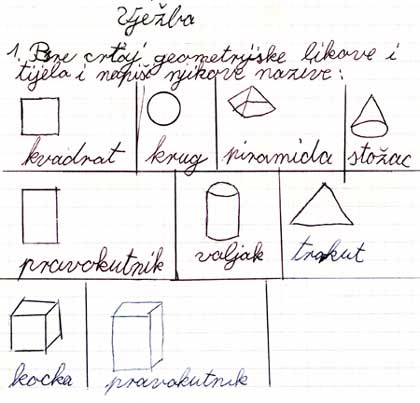 Vježba
1. Brze crtaj geometrijske likove i
tijela i napiši njikove nazive:
kvadrat krug piramida stožac
pravokutnik valjak trokut
kocka pravokutnik